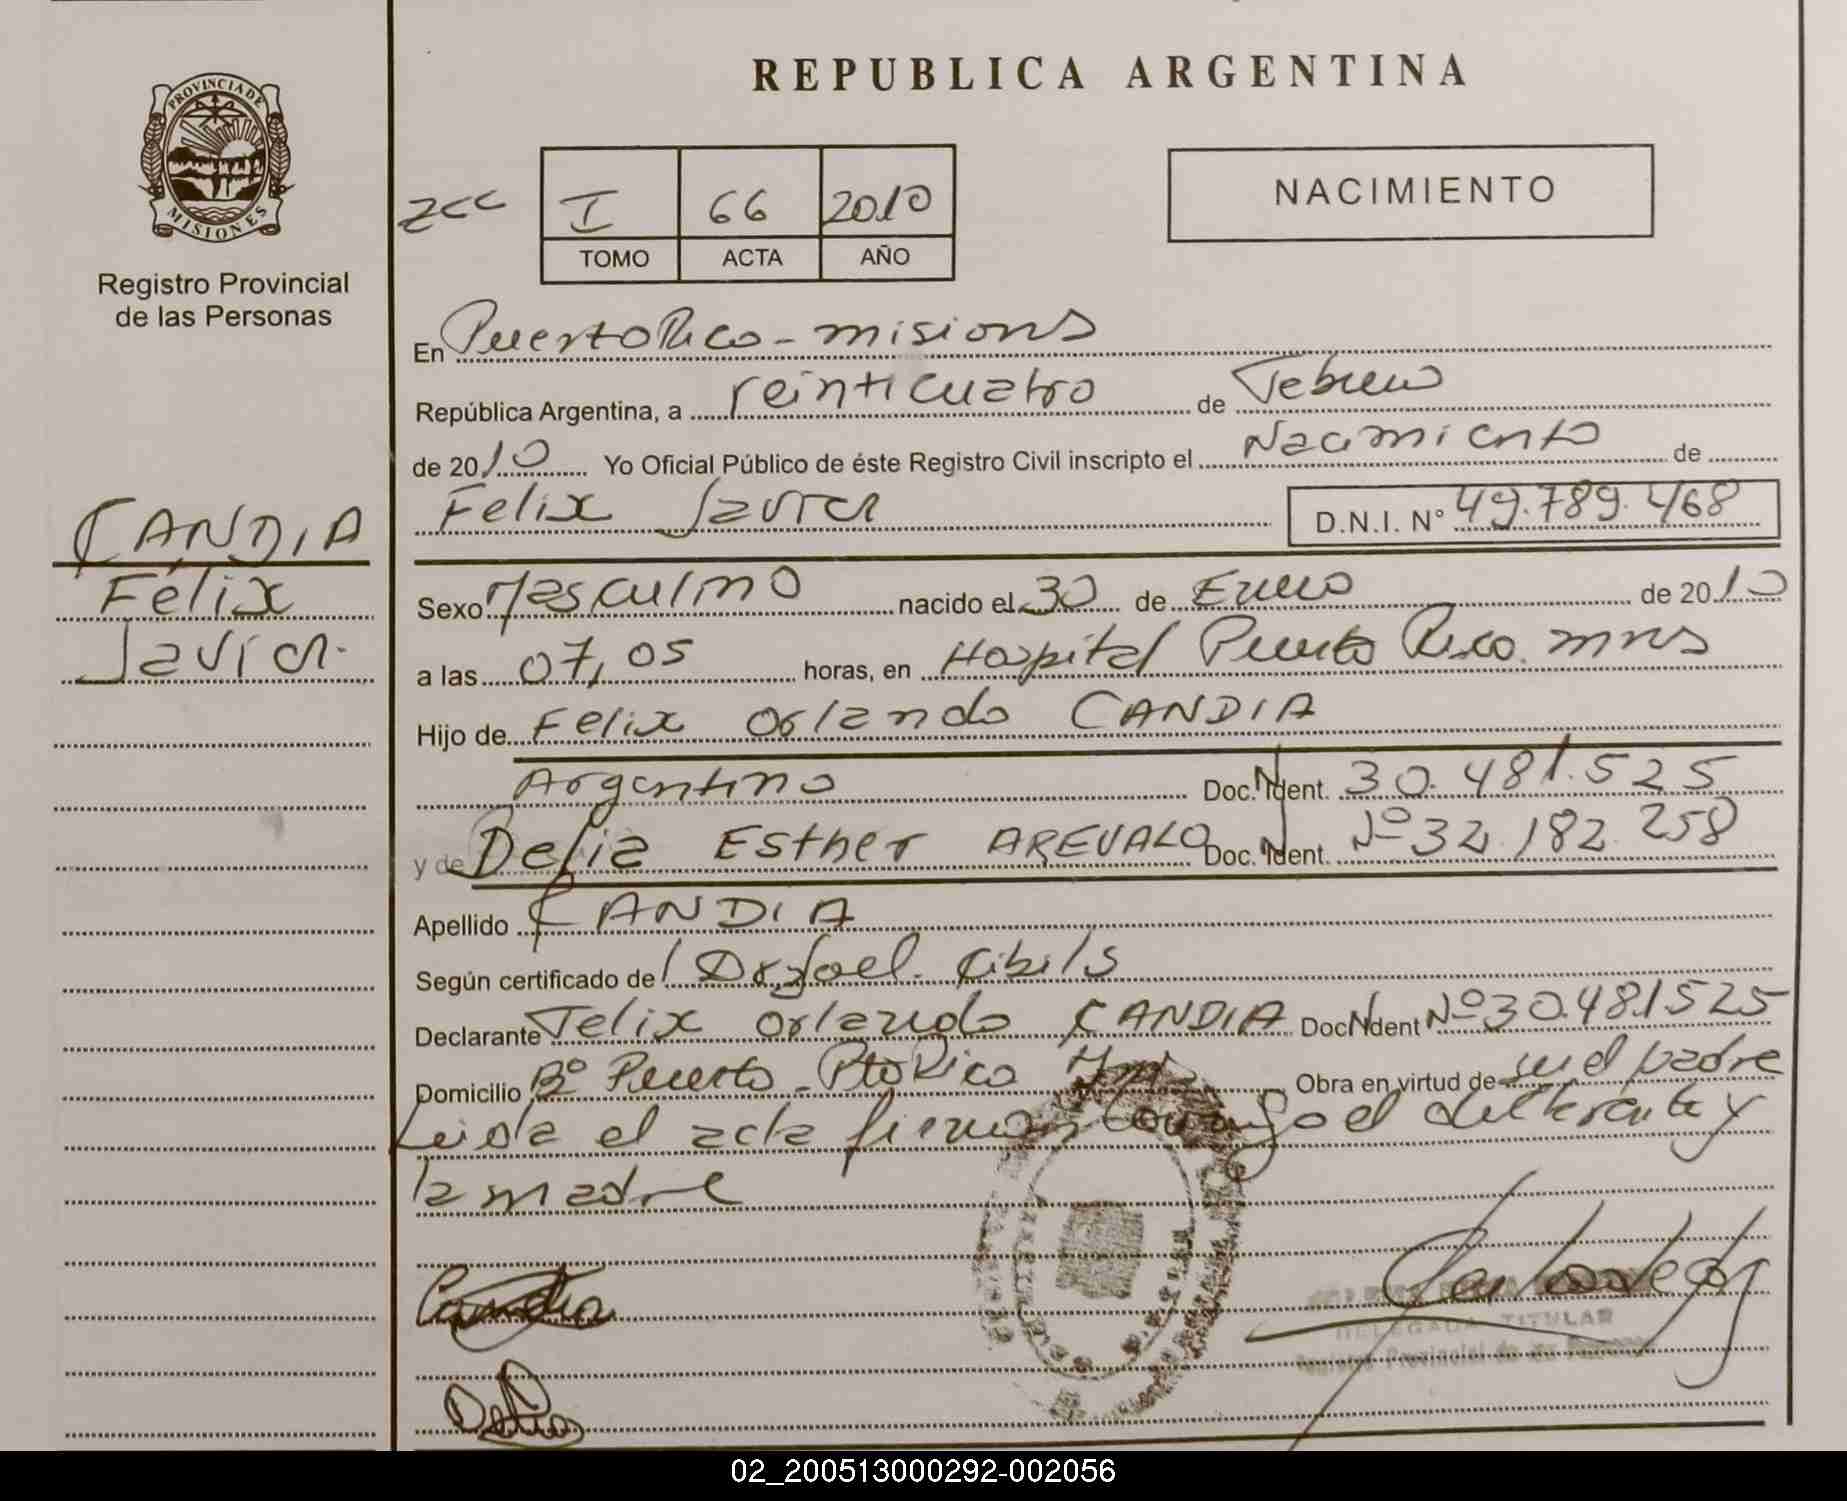 REPUBLICA ARGENTINA
PROVINCIA DE MISIONES
Registro Provincial
de las Personas
zcc I 66 2010
TOMO ACTA AÑO
NACIMIENTO
En Puerto Rico - misions
República Argentina, a veinticuatro de Febrero
de 2010 Yo Oficial Público de éste Registro Civil inscripto el Nacimiento de
Felix Javier D.N.I. Nº 49.789.468
CANDIA
Félix
Javier.
Sexo Masculino nacido el 30 de Enero de 2010
a las 07,05 horas, en Hospital Puerto Rico mns
Hijo de Felix Orlando CANDIA
Argentino Doc. Ident. Nº 30.481.525
y de Delia Esther AREVALO Doc. Ident. Nº 32.182.258
Apellido CANDIA
Según certificado de Dr Joel Cibils
Declarante Felix Orlando CANDIA Doc Ident Nº 30.481525
Domicilio Bº Puerto - Pto Rico Obra en virtud de ser el padre
Leida el acta firman conmigo el declarante y
la madre
Candia
DELEGADA TITULAR
Registro Provincial de las Personas
Delia
02_200513000292-002056